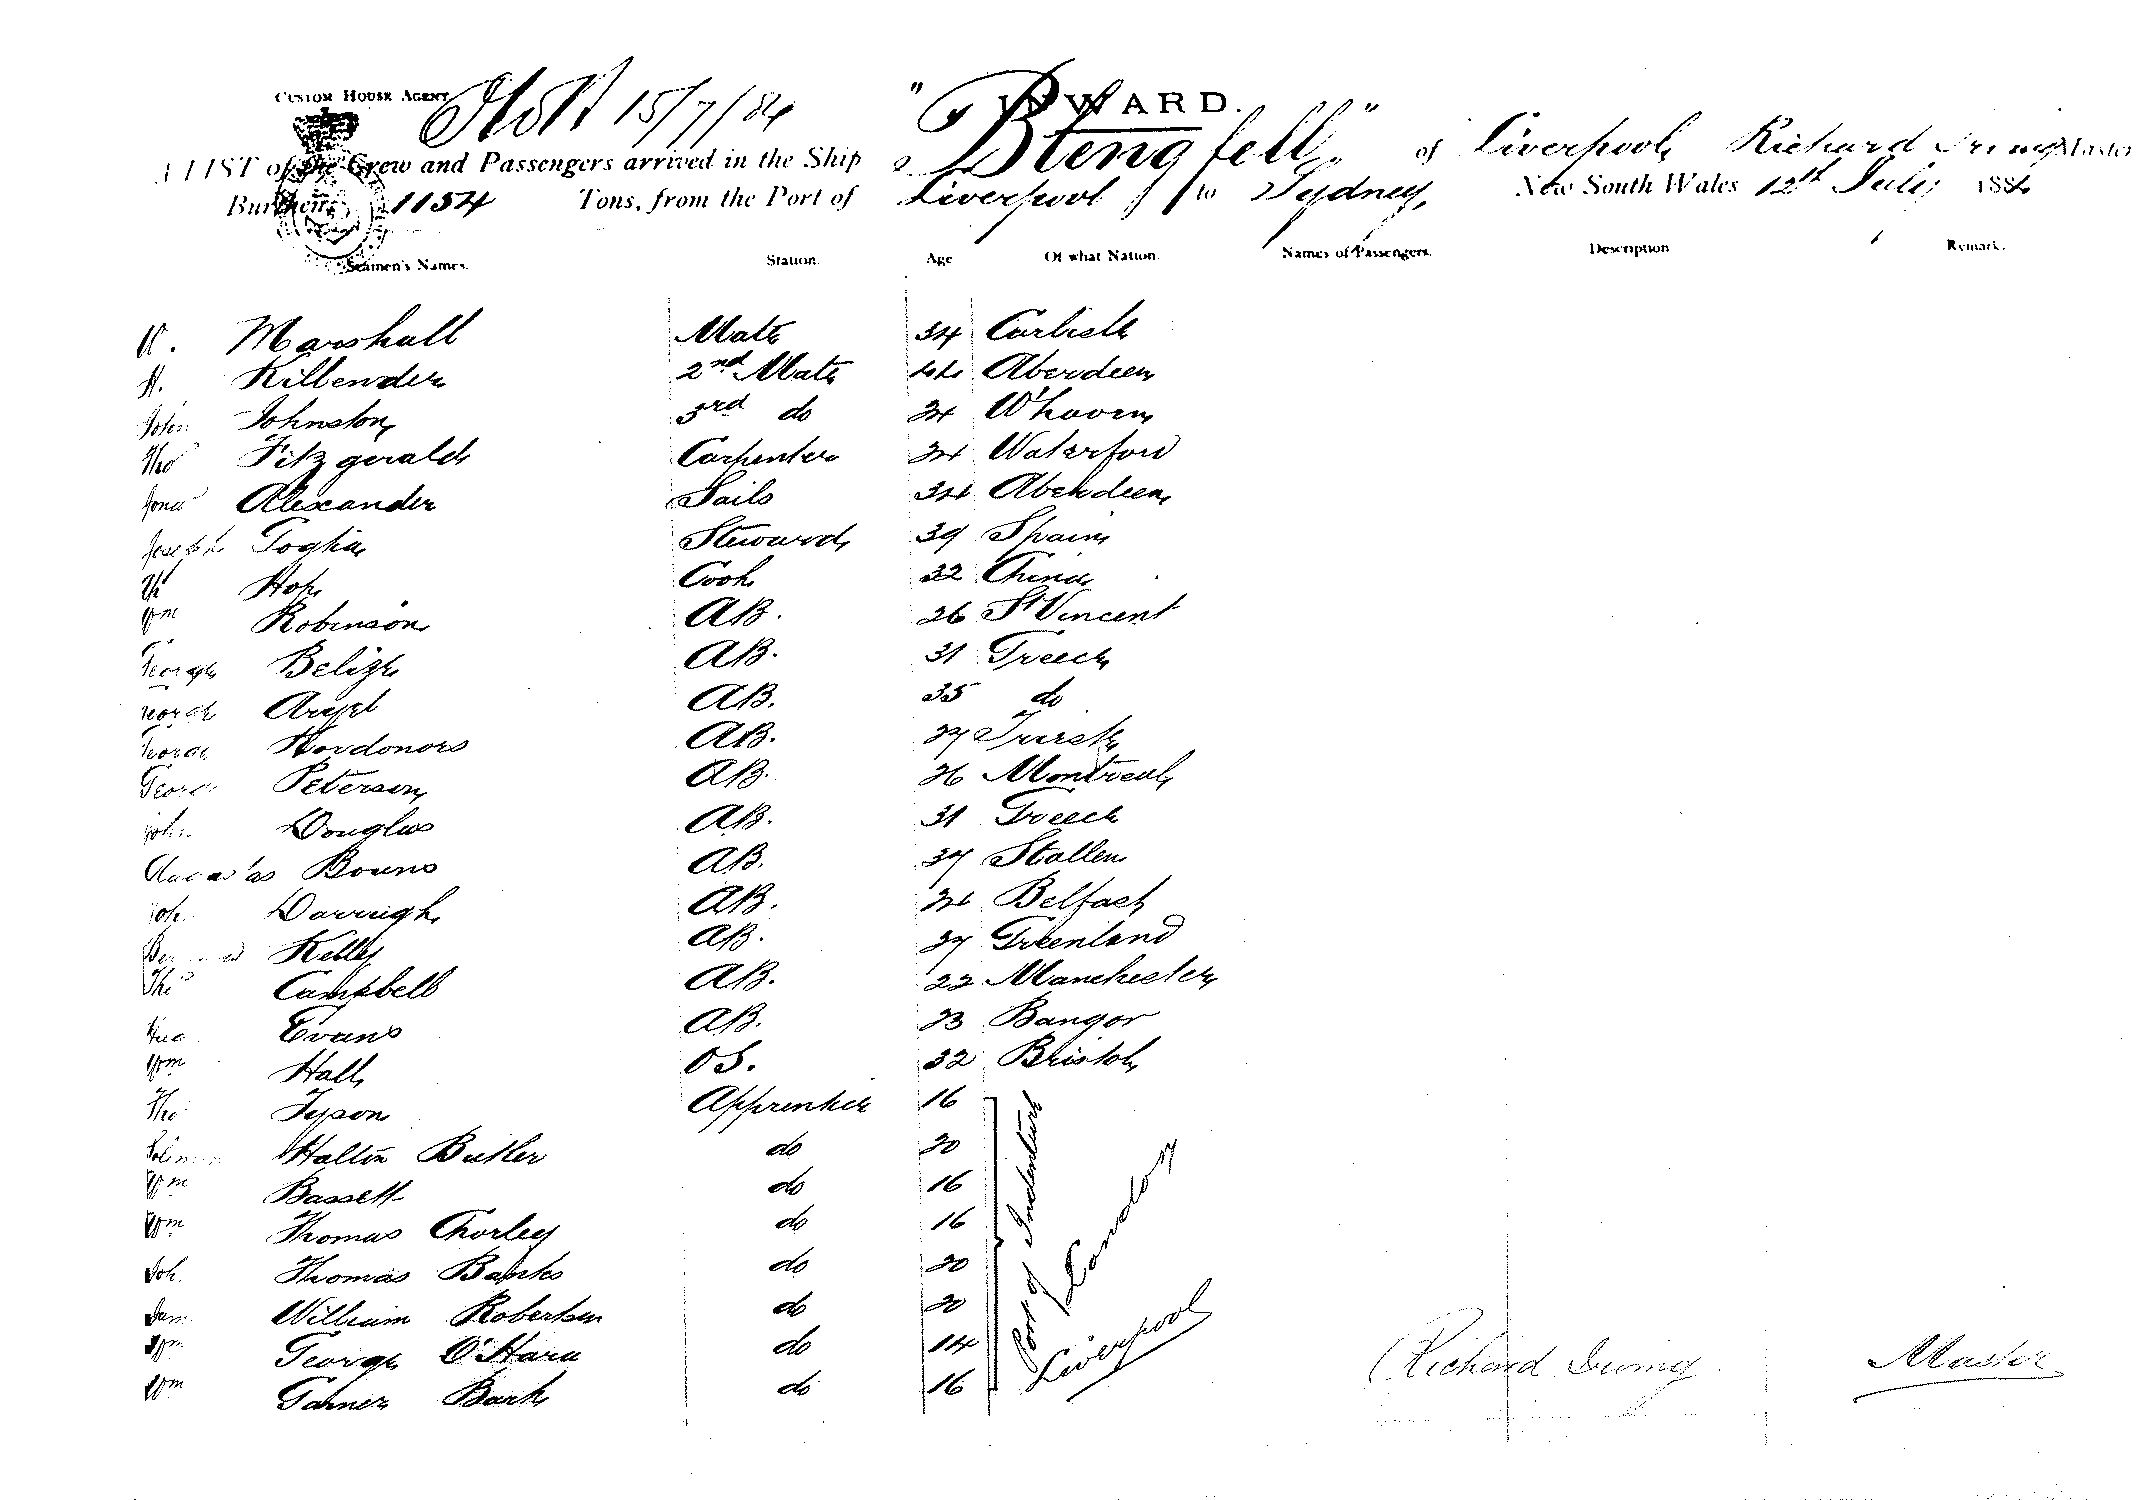 CUSTOM HOUSE AGENT 15/7/84
INWARD.
A LIST of the Crew and Passengers arrived in the Ship "Stengfell" of Liverpool, Richard Irving Master
Burthen 1154 Tons, from the Port of Liverpool to Sydney, New South Wales 12th July 1884
Seamen's Names. Station. Age Of what Nation. Names of Passengers. Description Remark.
Marshall Mate 34 Carlisle
H. Killender 2nd Mate 44 Aberdeen
John Johnston 3rd do 24 W'haven
Thos Fitzgerald Carpenter 24 Waterford
Jonas Alexander Sails 34 Aberdeen
Joseph Togha Steward 39 Spain
Hop Cook 32 China
Wm Robinson AB. 26 St Vincent
George Belizh AB. 31 Greece
George AB. 35 do
George Hordonors AB. 27 Turick
George Peterson AB. 26 Montreal
John Douglas AB. 31 Greece
Bowns AB. 37 Stallen
Joh. Darrugh AB. 24 Belfast
Bernard Kelly AB. 37 Greenland
Thos Campbell AB. 22 Manchester
Evans AB. 23 Bangor
Wm Hall OS. 32 Bristol
Thos Tyson Apprentice 16
Holton Butler do 20
Wm Bassett do 16
Wm Thomas Chorley do 16
Joh. Thomas Banks do 20
Sam William Robertson do 20
Wm George O'Hara do 14
Wm Garner Bark do 16
Port of Indenture
London
Liverpool
Richard Irving Master